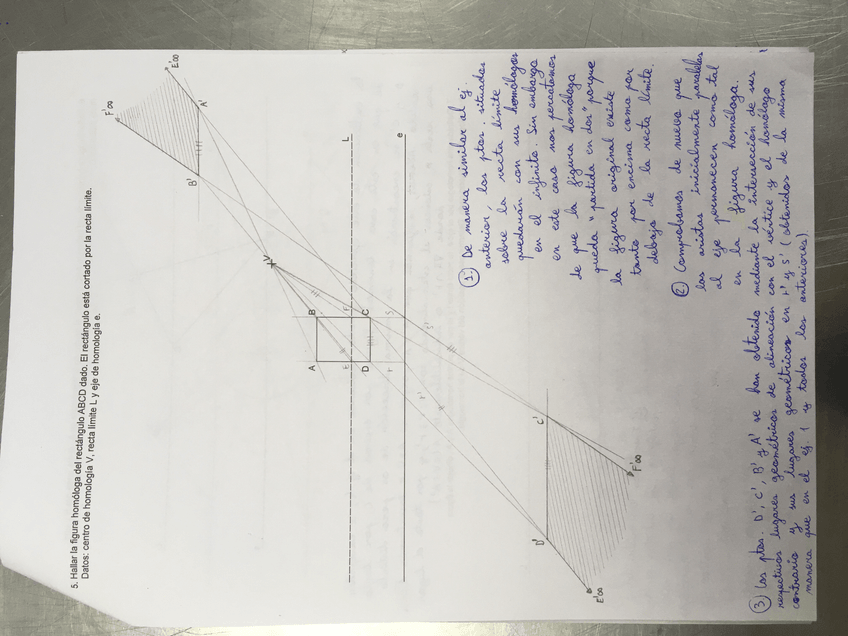 5. Hallar la figura homóloga del rectángulo ABCD dado. El rectángulo está cortado por la recta límite.
Datos: centro de homología V, recta límite L y eje de homología e.
F'∞
E'∞
A'
B'
V
L
e
A
B
E
F
D
C
r
s
r'
s'
D'
C'
E'∞
F'∞
1. De manera similar al ej.
anterior, los ptos. situados
sobre la recta límite
quedarán con sus homólogos
en el infinito. Sin embargo
en este caso nos percatamos
de que la figura homóloga
queda "partida en dos" porque
la figura original existe
tanto por encima como por
debajo de la recta límite.
2. Comprobamos de nuevo que
las aristas inicialmente paralelas
al eje permanecen como tal
en la figura homóloga.
3. Los ptos. D', C', B' y A' se han obtenido mediante la intersección de sus
respectivos lugares geométricos de alineación con el vértice y el homólogo
contrario y sus lugares geométricos en r' y s' (obtenidos de la misma
manera que en el ej. 1 y todos los anteriores).